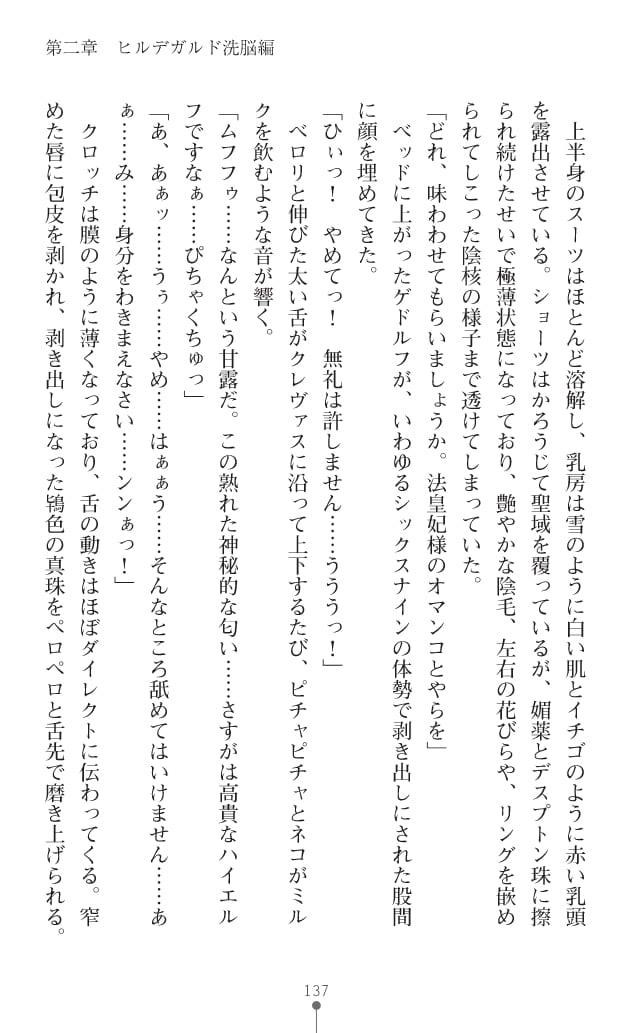 第二章　ヒルデガルド洗脳編
　上半身のスーツはほとんど溶解し、乳房は雪のように白い肌とイチゴのように赤い乳頭
を露出させている。ショーツはかろうじて聖域を覆っているが、媚薬とデスプトン珠に擦
られ続けたせいで極薄状態になっており、艶やかな陰毛、左右の花びらや、リングを嵌め
られてしこった陰核の様子まで透けてしまっていた。
「どれ、味わわせてもらいましょうか。法皇妃様のオマンコとやらを」
　ベッドに上がったゲドルフが、いわゆるシックスナインの体勢で剥き出しにされた股間
に顔を埋めてきた。
「ひぃっ！　やめてっ！　無礼は許しません……うううっ！」
　ベロリと伸びた太い舌がクレヴァスに沿って上下するたび、ピチャピチャとネコがミル
クを飲むような音が響く。
「ムフフゥ……なんという甘露だ。この熟れた神秘的な匂い……さすがは高貴なハイエル
フですなぁ……ぴちゃくちゅっ」
「あ、あぁッ……うぅ……やめ……はぁぁう……そんなところ舐めてはいけません……あ
ぁ……み……身分をわきまえなさい……ンンぁっ！」
　クロッチは膜のように薄くなっており、舌の動きはほぼダイレクトに伝わってくる。窄
めた唇に包皮を剥かれ、剥き出しになった鴇色の真珠をペロペロと舌先で磨き上げられる。
137